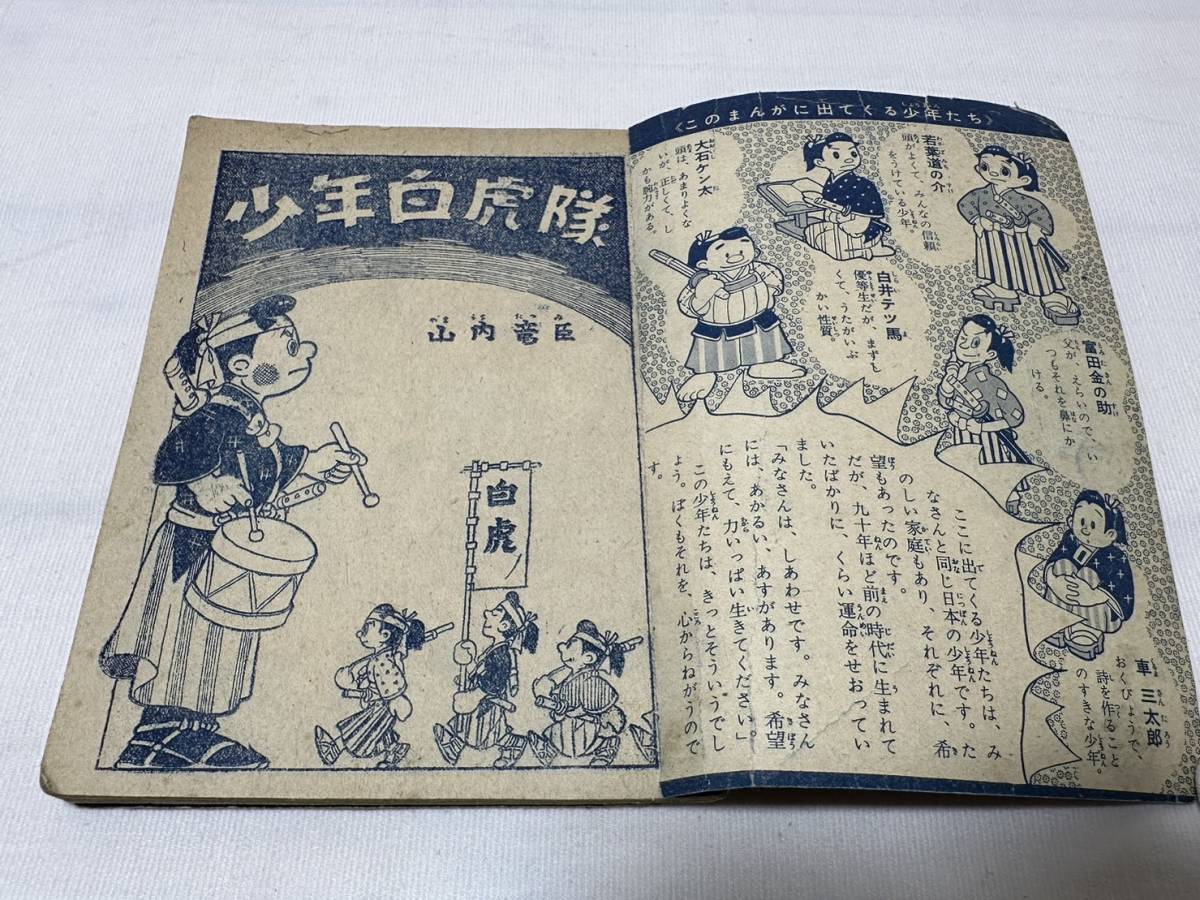 少年白虎隊
山内竜臣
白虎
〈このまんがに出てくる少年たち〉
若葉道の介
頭がよくて、みんなの信頼
をうけている少年。
大石ケン太
頭は、あまりよくな
いが、正しくて、し
かも腕力がある。
白井テツ馬
優等生だが、まずし
くて、うたがいぶ
かい性質。
富田金の助
父が、えらいので、い
つもそれを鼻にか
ける。
車三太郎
おくびょうで、
詩を作ること
のすきな少年。
ここに出てくる少年たちは、み
なさんと同じ日本の少年です。た
のしい家庭もあり、それぞれに、希
望もあったのです。
だが、九十年ほど前の時代に生まれて
いたばかりに、くらい運命をせおってい
ました。
「みなさんは、しあわせです。みなさん
には、あかるい、あすがあります。希望
にもえて、力いっぱい生きてください」
この少年たちは、きっとそういうでし
ょう。ぼくもそれを、心からねがうので
す。